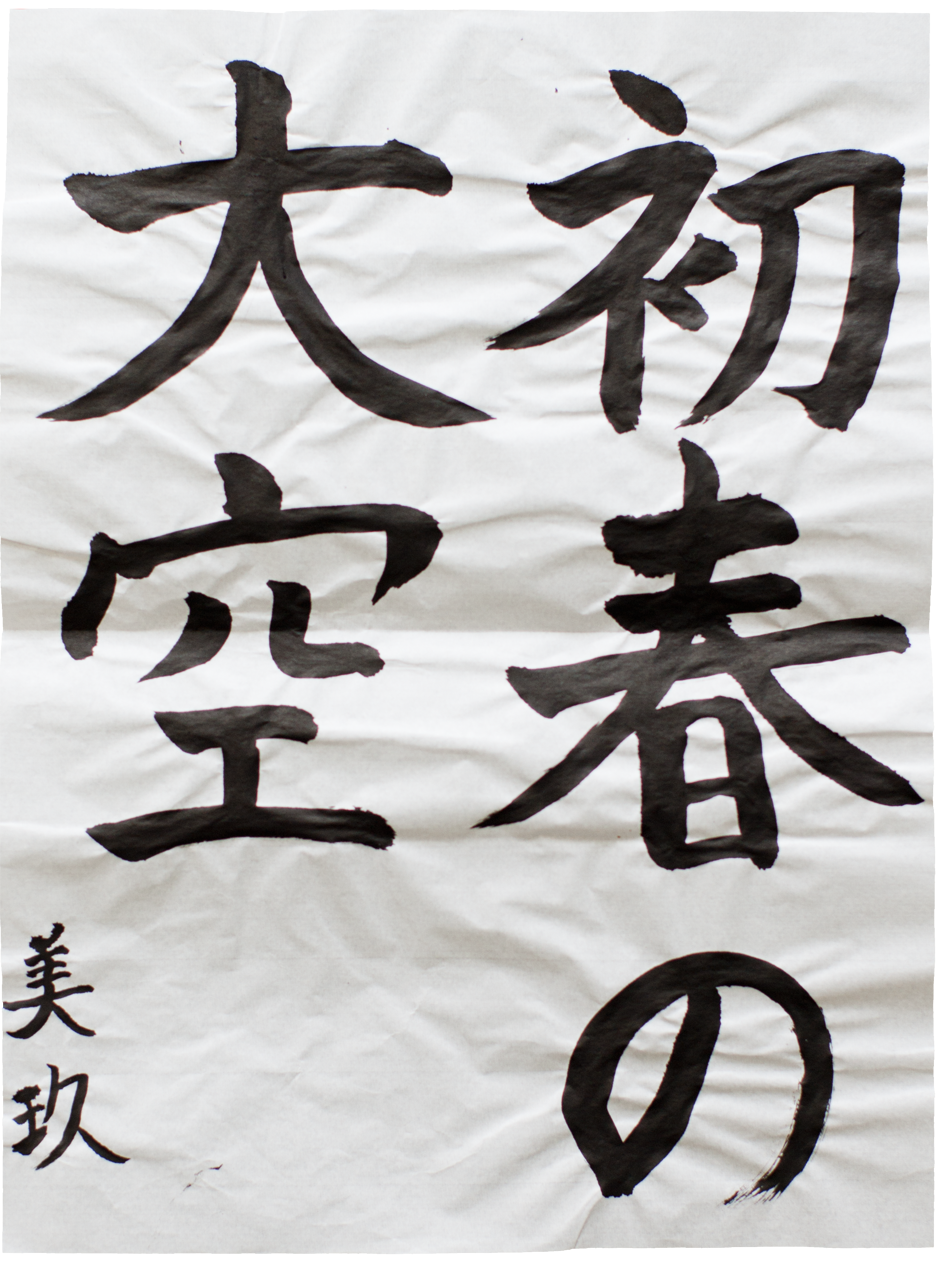 初春の
大空
美玖